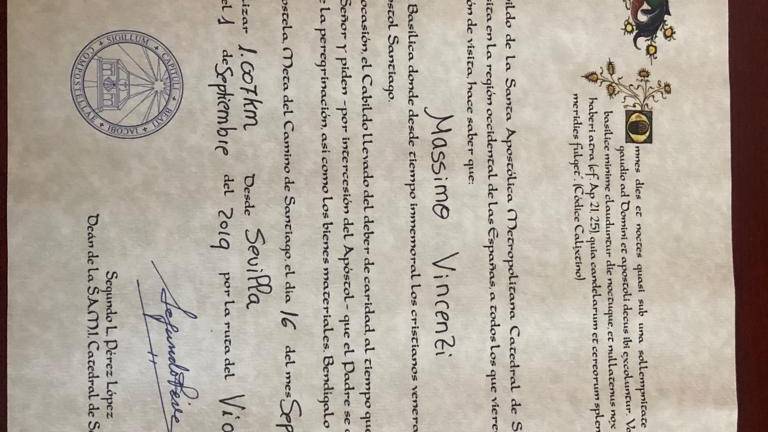 mnes dies et noctes quasi sub una sollempnitate
gaudio ad Domini et apostoli decus ibi excoluntur. Va
basilice minime clauduntur die noctuque, et nullatenus nox
haberi atra (cf. Ap 21, 25), quia candelarum et cereorum splen
meridies fulget". (Códice Calixtino)
bildo de la Santa Apostólica Metropolitana Catedral de S
sita en la región occidental de las Españas, a todos los que viere
ón de visita, hace saber que:
Massimo Vincenzi
Basílica donde desde tiempo inmemoral los cristianos venera
stol Santiago.
ocasión, el Cabildo llevado del deber de caridad, al tiempo que
Señor y piden -por intercesión del Apóstol- que el Padre se
e la peregrinación así como los bienes materiales. Bendígalo
ostela, Meta del Camino de Santiago, el día 16 del mes Sep
izar 1.007km Desde Sevilla
el 1 de Septiembre del 2019 por la ruta del Vía
Segundo L. Pérez López
Deán de la S.A.M.I. Catedral de S
SIGILLUM CAPITULI BEATI JACOBI COMPOSTELLAE